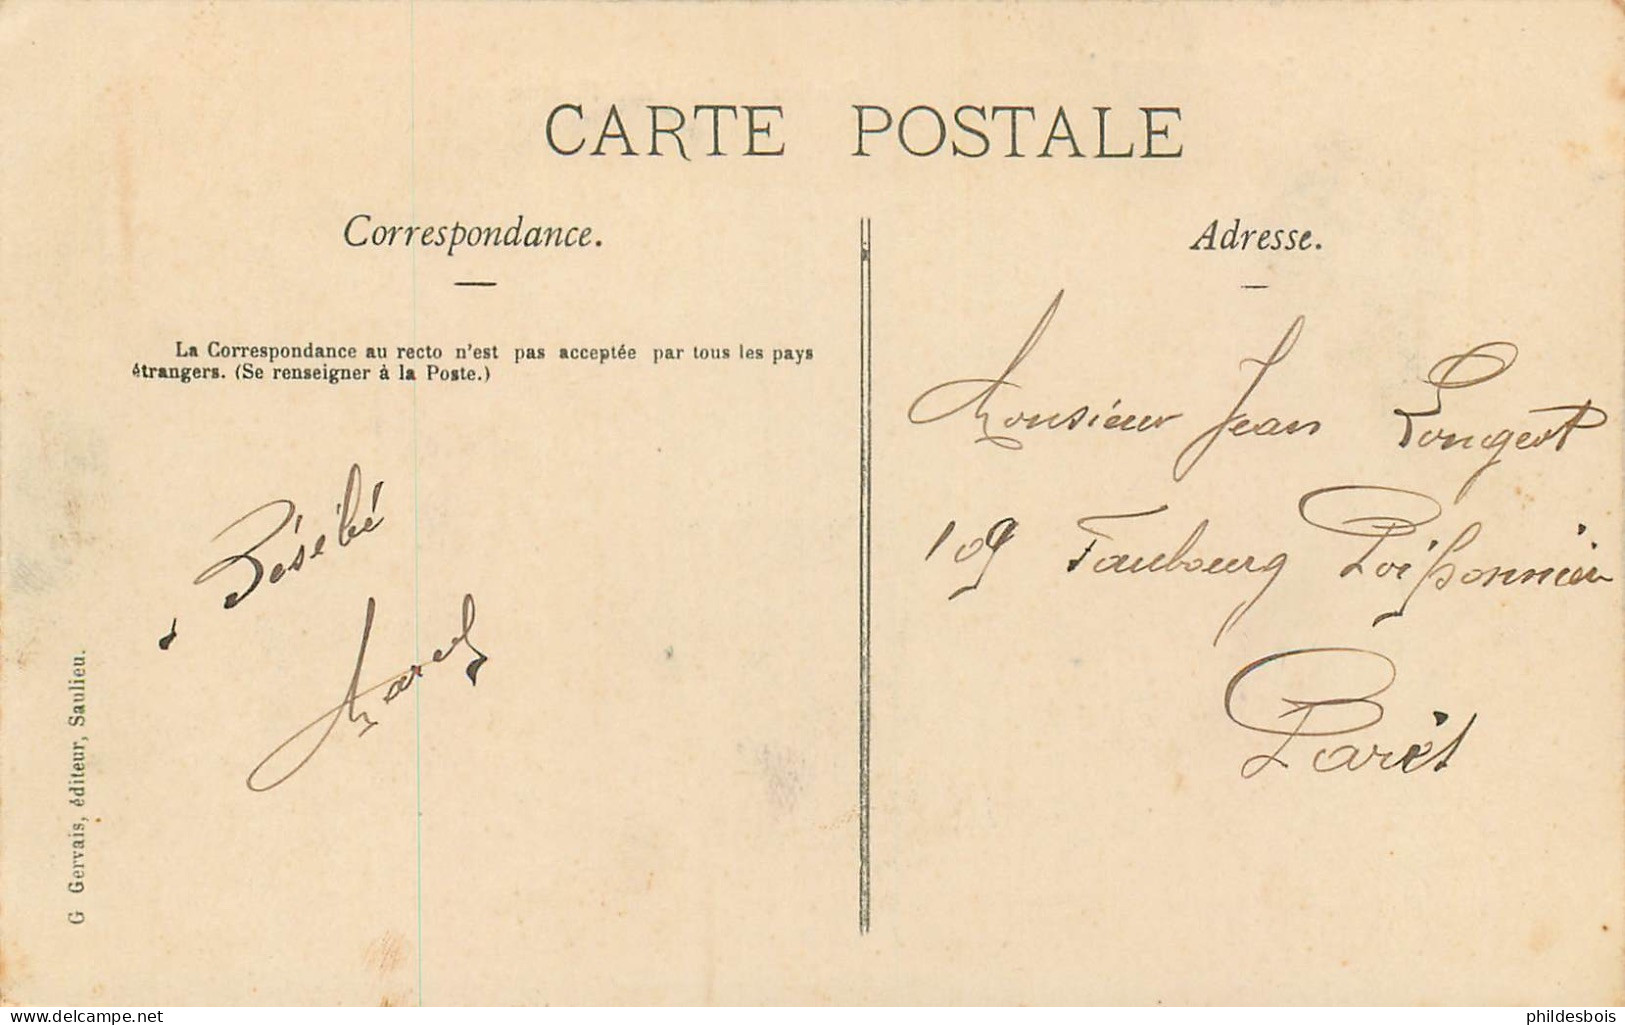 CARTE POSTALE
Correspondance.
La Correspondance au recto n'est pas acceptée par tous les pays
étrangers. (Se renseigner à la Poste.)
Bésébé
Marcel
G Gervais, éditeur, Saulieu.
Adresse.
Monsieur Jean Longest
109 Faubourg Poissonnière
Paris
phildesbois